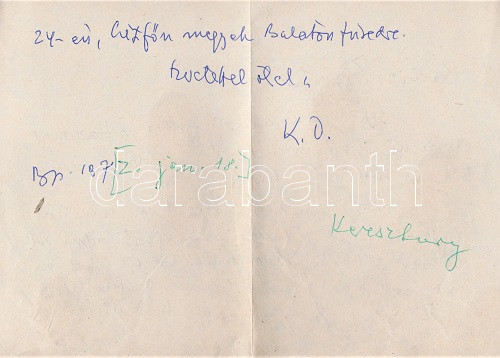 24-én, hétfőn megyek Balatonfüredre.
szeretettel ölel,
K. D.
Bp. 197[2. jan. 18.]
darabanth
Keresztury